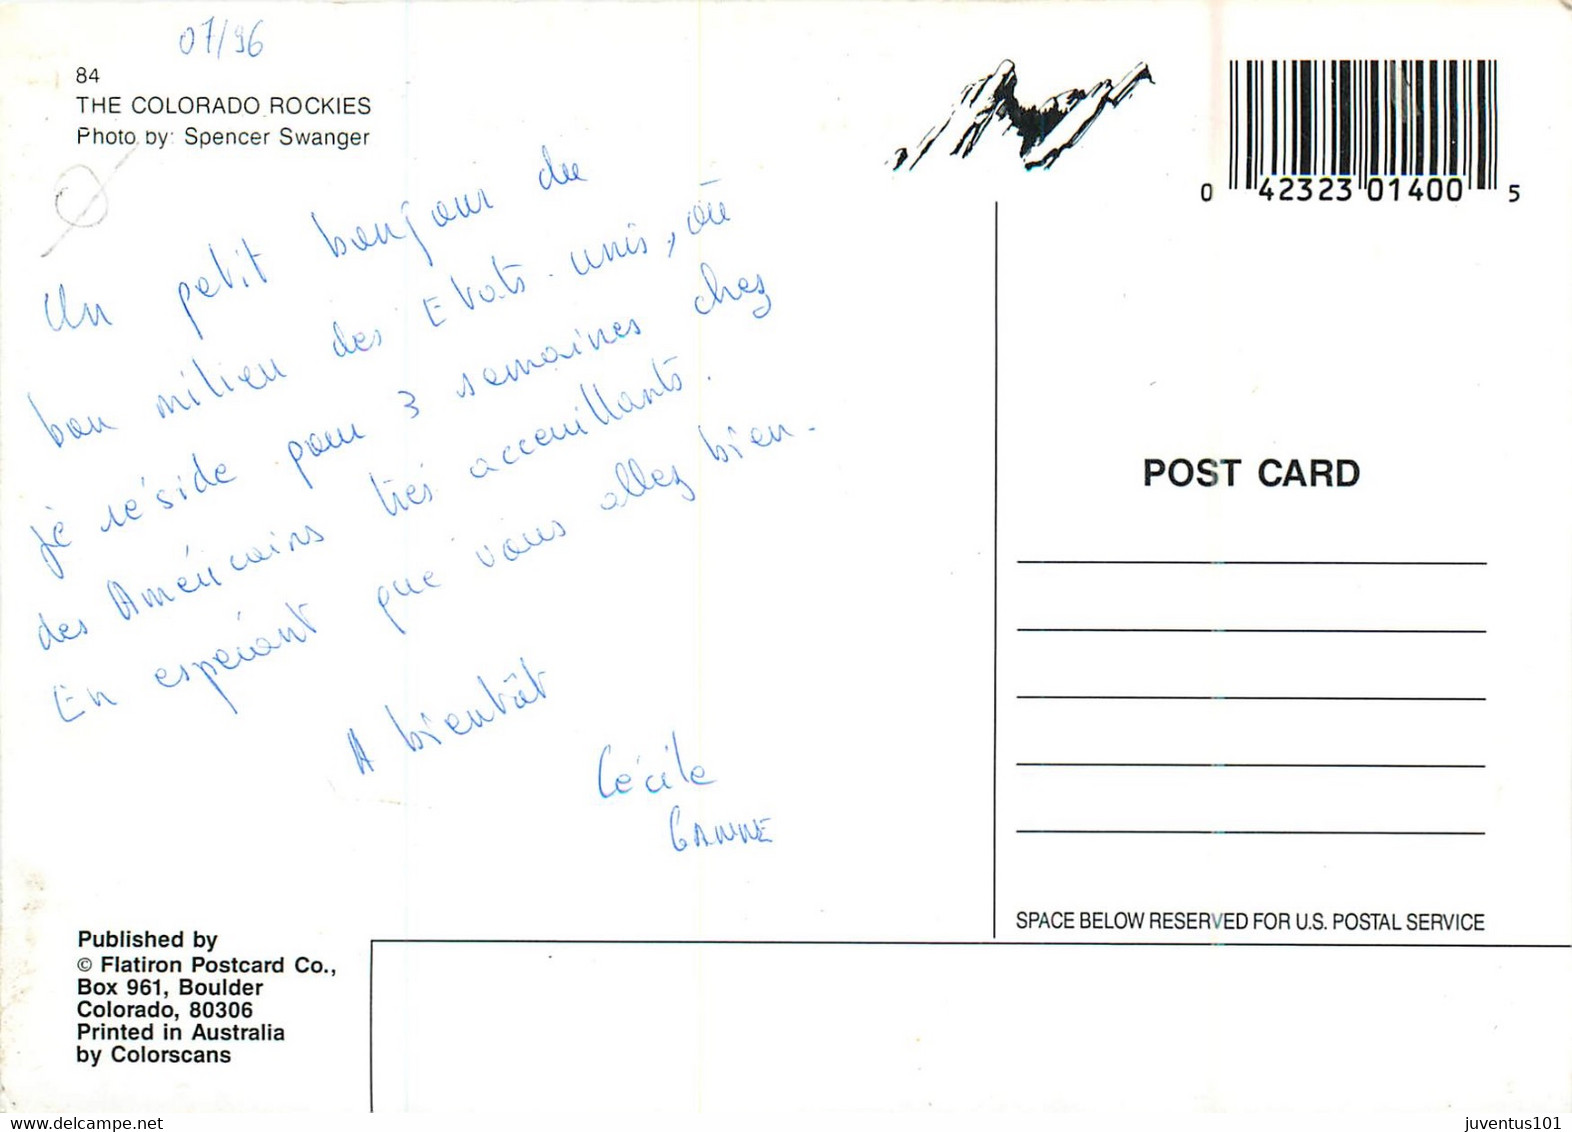 07/96
84
THE COLORADO ROCKIES
Photo by: Spencer Swanger
0 42323 01400 5
Un petit bonjour du
bon milieu des Etats-unis, où
je réside pour 3 semaines chez
des Américains très acceuillants.
En espérant que vous allez bien.
A bientôt
Cécile
GAMME
POST CARD
SPACE BELOW RESERVED FOR U.S. POSTAL SERVICE
Published by
© Flatiron Postcard Co.,
Box 961, Boulder
Colorado, 80306
Printed in Australia
by Colorscans
juventus101